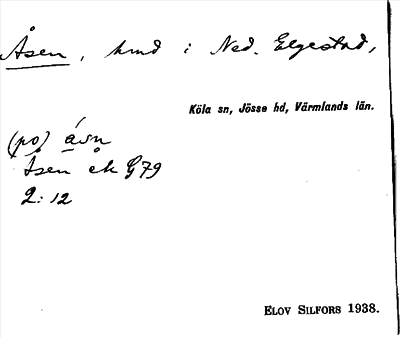 Åsen, hmd i Ned. Elgestad,
Köla sn, Jösse hd, Värmlands län.
(på) åsn
Åsen ek G79
2:12
ELOV SILFORS 1938.